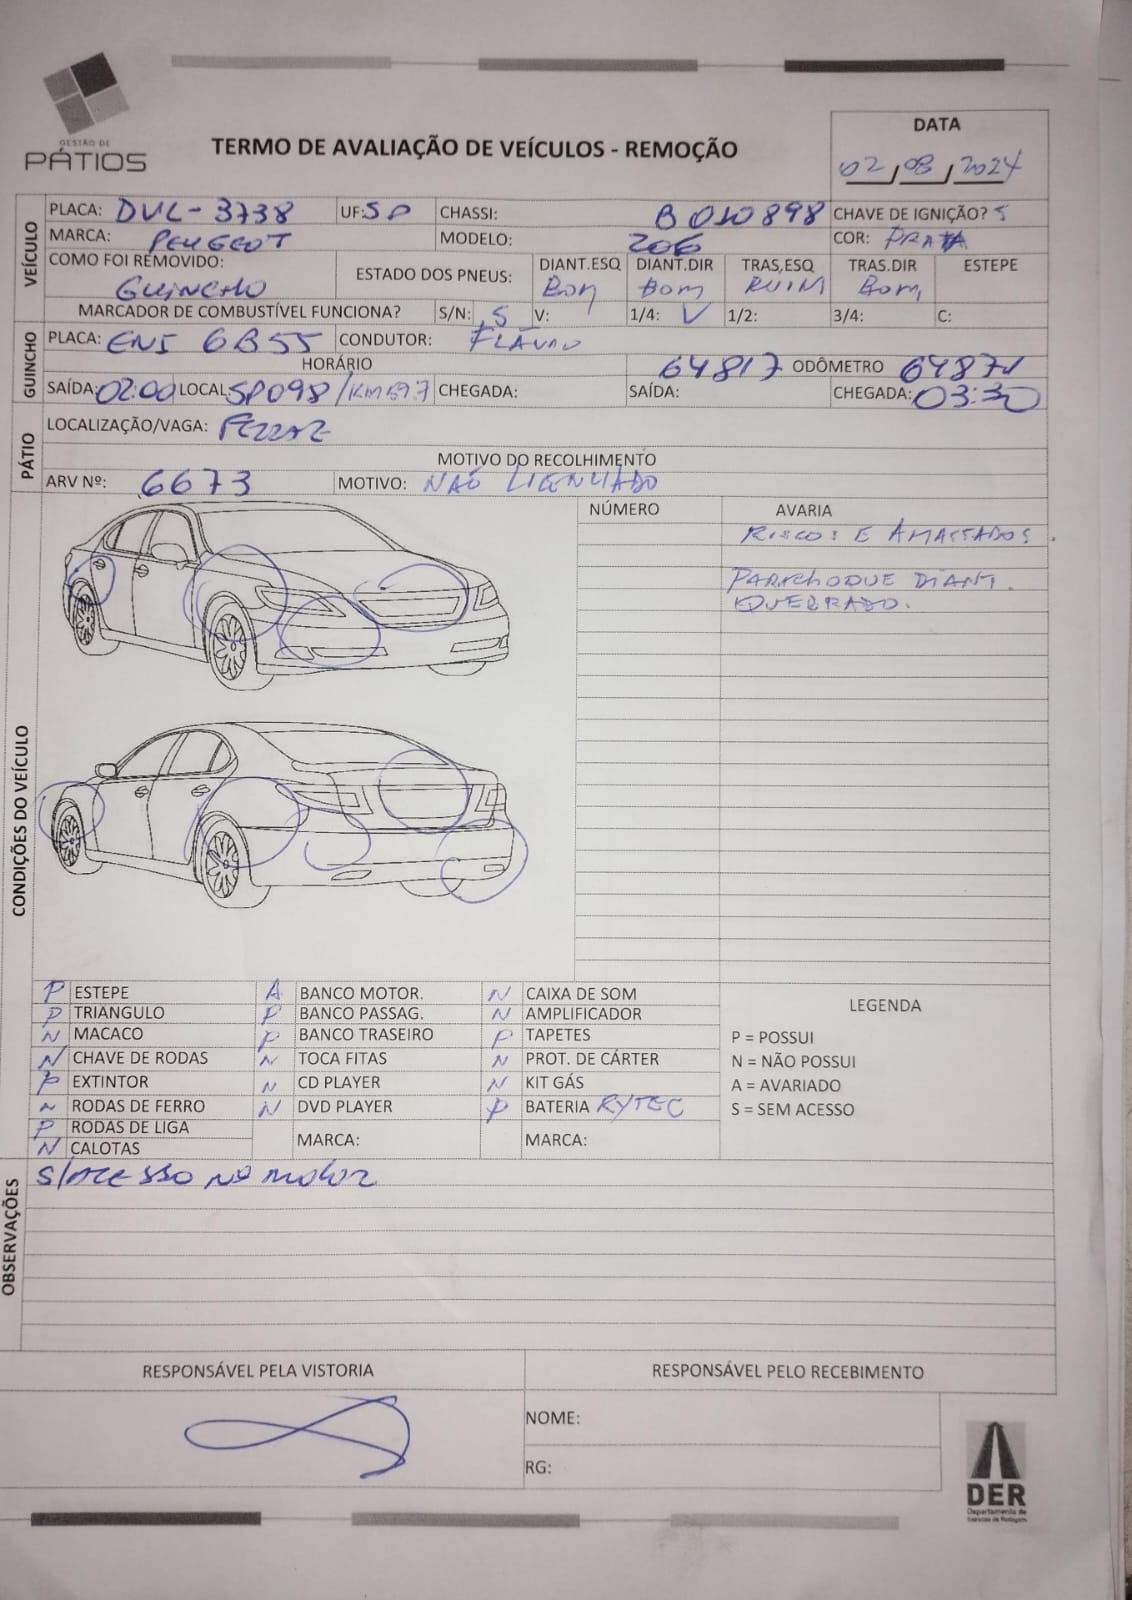 GESTÃO DE
PÁTIOS
TERMO DE AVALIAÇÃO DE VEÍCULOS - REMOÇÃO
DATA
02/08/2024
VEÍCULO
PLACA: DVL-3738 UF: SP CHASSI: B010898 CHAVE DE IGNIÇÃO? S
MARCA: PEUGEOT MODELO: 206 COR: PRATA
COMO FOI REMOVIDO: GUINCHO ESTADO DOS PNEUS: DIANT.ESQ BOM DIANT.DIR BOM TRAS,ESQ RUIM TRAS.DIR BOM ESTEPE
MARCADOR DE COMBUSTÍVEL FUNCIONA? S/N: S V: 1/4: V 1/2: 3/4: C:
GUINCHO
PLACA: ENJ 6B55 CONDUTOR: FLÁVIO
HORÁRIO 64817 ODÔMETRO 64871
SAÍDA: 02:00 LOCAL SP098/KM597 CHEGADA: SAÍDA: CHEGADA: 03:30
PÁTIO
LOCALIZAÇÃO/VAGA: FERRAZ
MOTIVO DO RECOLHIMENTO
ARV Nº: 6673 MOTIVO: NAO LICENCIADO
CONDIÇÕES DO VEÍCULO
NÚMERO AVARIA
RISCOS E AMASSADOS.
PARACHOQUE DIANT.
QUEBRADO.
P ESTEPE A BANCO MOTOR. N CAIXA DE SOM
P TRIÂNGULO P BANCO PASSAG. N AMPLIFICADOR
N MACACO P BANCO TRASEIRO P TAPETES
N CHAVE DE RODAS N TOCA FITAS N PROT. DE CÁRTER
P EXTINTOR N CD PLAYER N KIT GÁS
N RODAS DE FERRO N DVD PLAYER P BATERIA RYTEC
P RODAS DE LIGA MARCA: MARCA:
N CALOTAS
LEGENDA
P = POSSUI
N = NÃO POSSUI
A = AVARIADO
S = SEM ACESSO
OBSERVAÇÕES
S/ACESSO NO MOTOR
RESPONSÁVEL PELA VISTORIA RESPONSÁVEL PELO RECEBIMENTO
NOME:
RG:
DER
Departamento de
Estradas de Rodagem